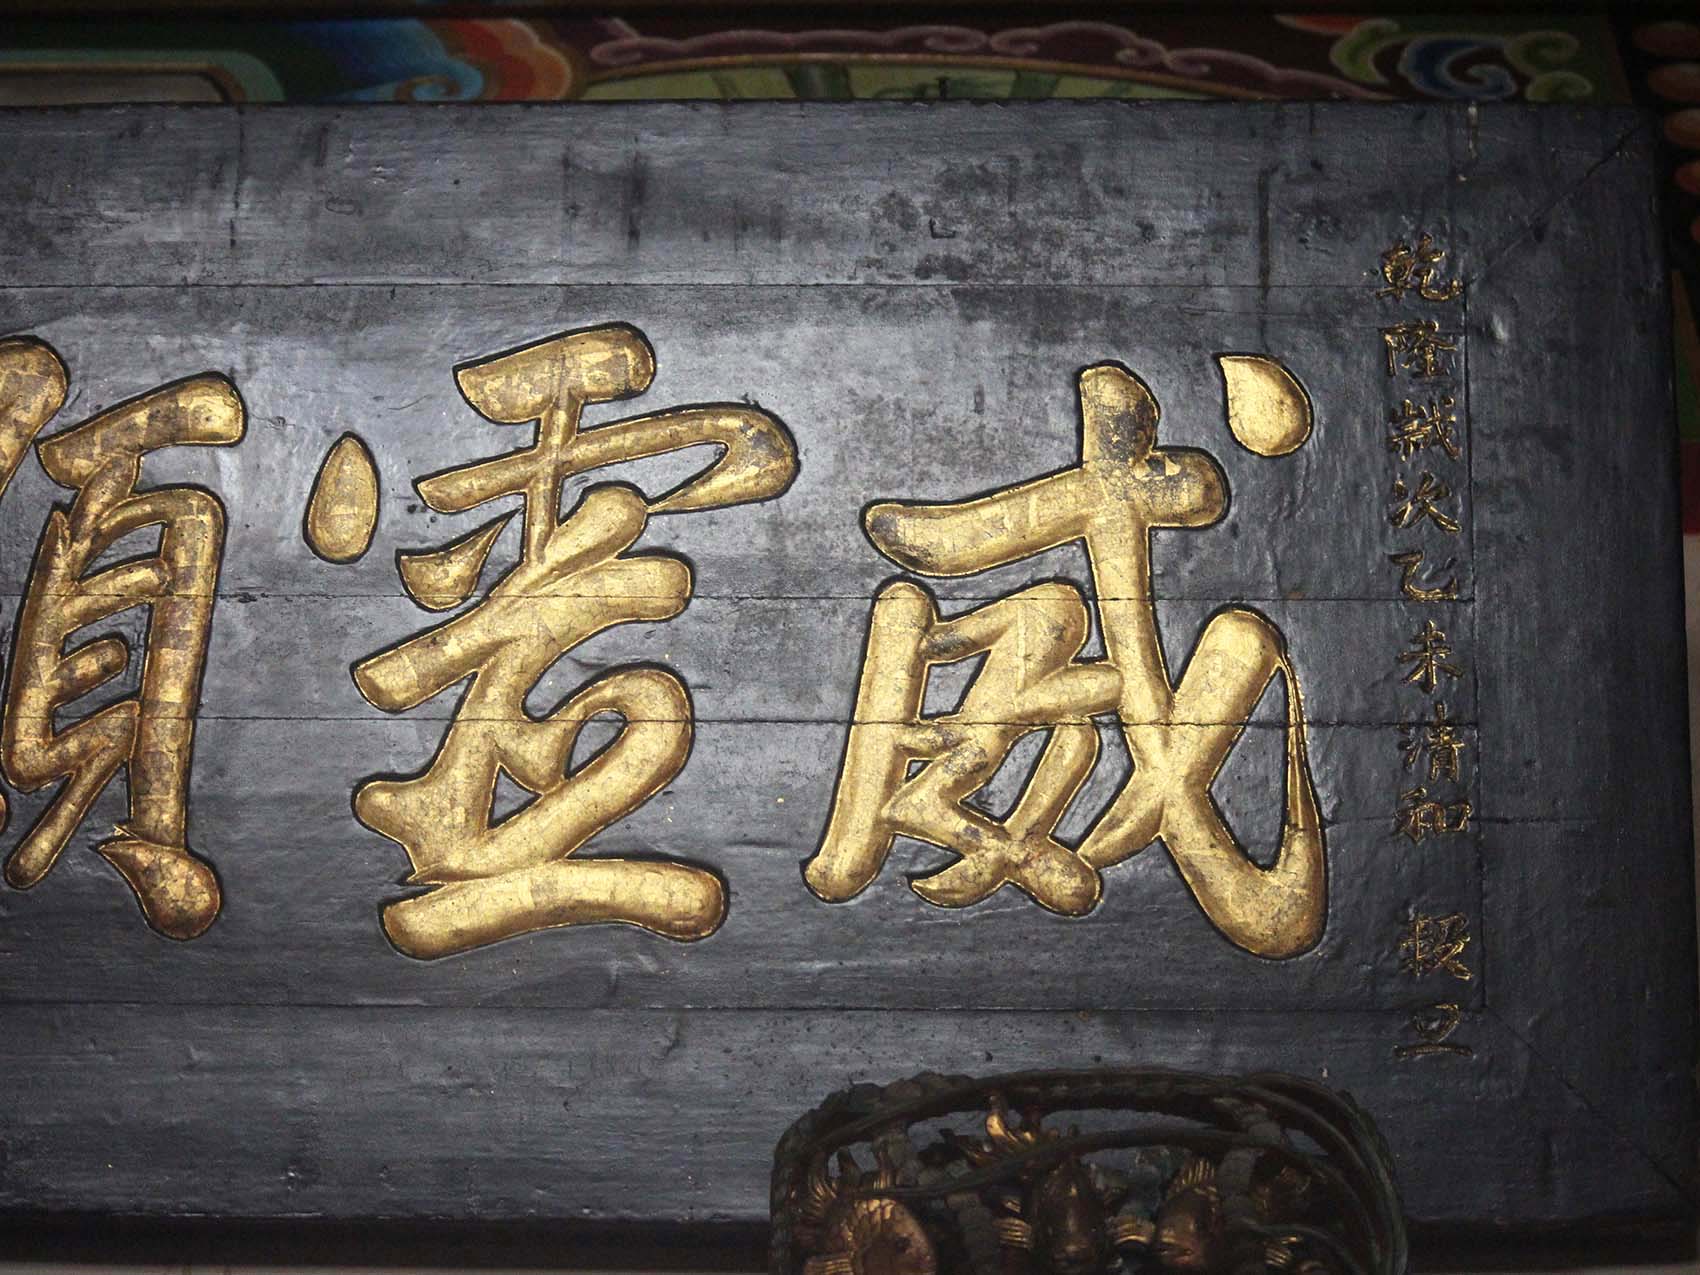 乾隆歲次乙未清和 穀旦
威靈